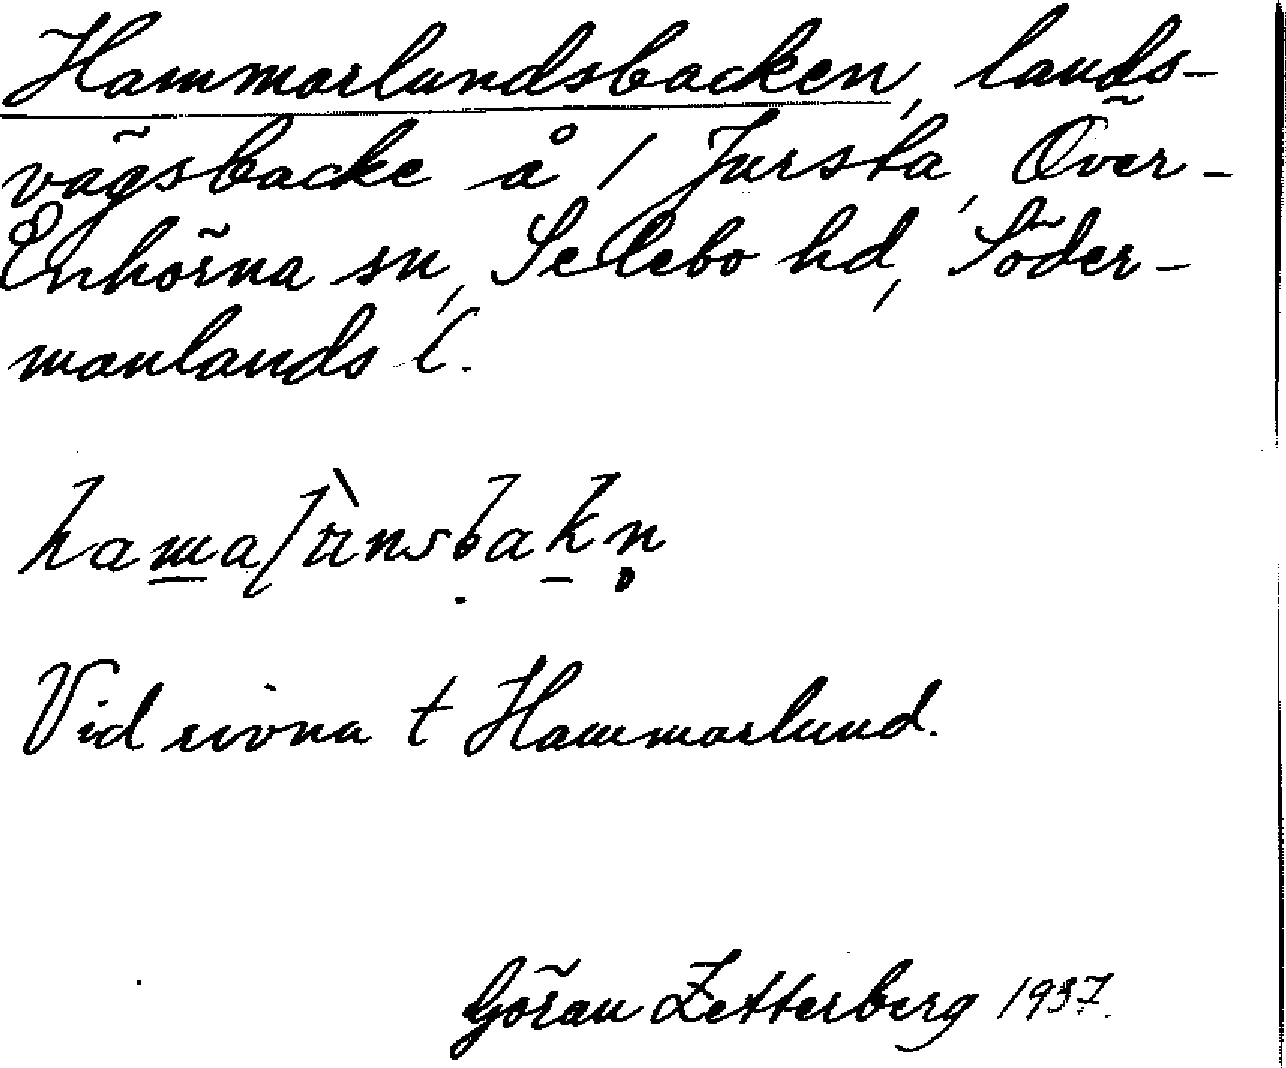 Hammarlundsbacken, lands-
vägsbacke å 1 Jursta, Över-
Enhörna sn, Selebo hd, Söder-
manlands l.
Vid rivna t Hammarlund.
Göran Zetterberg 1937.